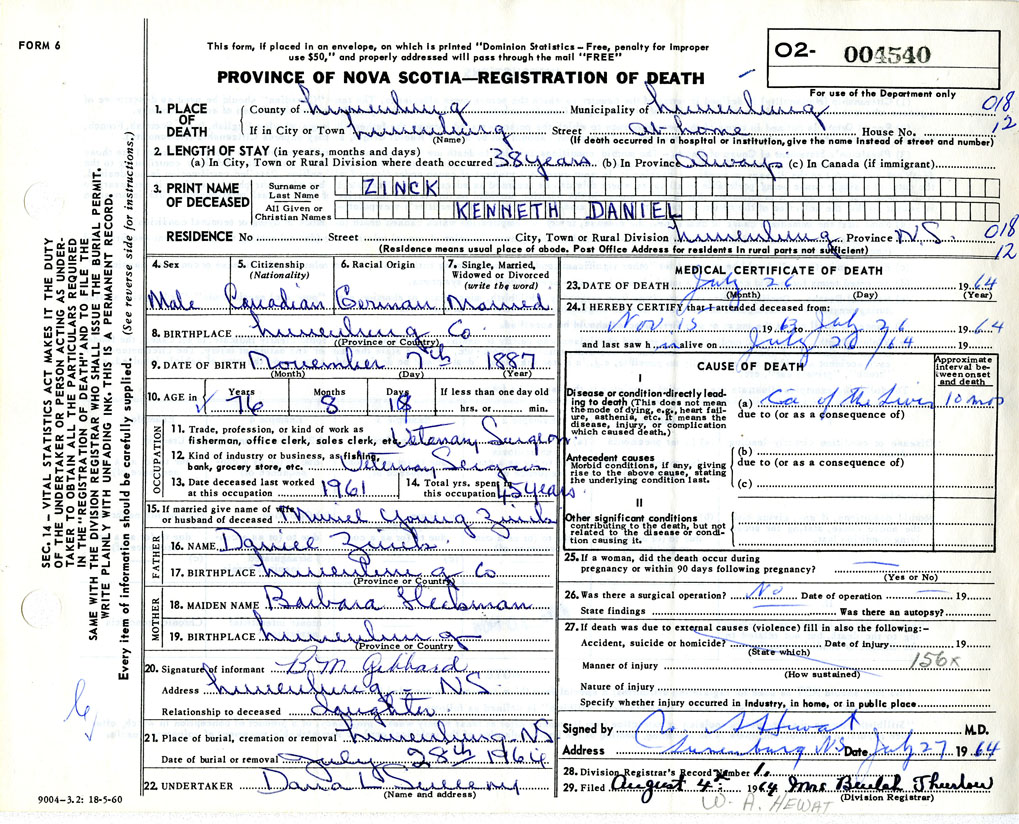 FORM 6
This form, if placed in an envelope, on which is printed "Dominion Statistics – Free, penalty for improper
use $50," and properly addressed will pass through the mail "FREE"
PROVINCE OF NOVA SCOTIA—REGISTRATION OF DEATH
O2- 004540
For use of the Department only
018
12
1. PLACE OF DEATH
County of Lunenburg Municipality of Lunenburg
If in City or Town Lunenburg Street at home House No.
(Name) (If death occurred in a hospital or institution, give the name instead of street and number)
2. LENGTH OF STAY (in years, months and days)
(a) In City, Town or Rural Division where death occurred 38 years (b) In Province Always (c) In Canada (if immigrant)
3. PRINT NAME OF DECEASED
Surname or Last Name ZINCK
All Given or Christian Names KENNETH DANIEL
RESIDENCE No Street City, Town or Rural Division Lunenburg Province N.S.
018
12
(Residence means usual place of abode. Post Office Address for residents in rural parts not sufficient)
4. Sex Male
5. Citizenship (Nationality) Canadian
6. Racial Origin German
7. Single, Married, Widowed or Divorced (write the word) Married
8. BIRTHPLACE Lunenburg Co.
(Province or Country)
9. DATE OF BIRTH November 7th 1887
(Month) (Day) (Year)
10. AGE in Years 76 Months 8 Days 18 If less than one day old hrs. or min.
OCCUPATION
11. Trade, profession, or kind of work as fisherman, office clerk, sales clerk, etc. Vetenary Surgeon
12. Kind of industry or business, as fishing, bank, grocery store, etc.
13. Date deceased last worked at this occupation 1961
14. Total yrs. spent in this occupation 45 years
15. If married give name of wife or husband of deceased Muriel Young Zinck
FATHER
16. NAME Daniel Zinck
17. BIRTHPLACE Lunenburg Co
(Province or Country)
MOTHER
18. MAIDEN NAME Barbara
19. BIRTHPLACE Lunenburg
(Province or Country
20. Signature of informant B M Gebhard
Address Lunenburg - N.S
Relationship to deceased daughter
21. Place of burial, cremation or removal Lunenburg NS
Date of burial or removal July 28th 1964
22. UNDERTAKER Dana L
(Name and address)
MEDICAL CERTIFICATE OF DEATH
23. DATE OF DEATH July 26 1964
(Month) (Day) (Year)
24. I HEREBY CERTIFY that I attended deceased from:
Nov 15 1963 to July 26 1964
and last saw h im alive on July 26/64 19
CAUSE OF DEATH
Approximate interval between onset and death
I
Disease or condition directly leading to death (This does not mean the mode of dying, e.g., heart failure, asthenia, etc. It means the disease, injury, or complication which caused death.)
(a) Ca of the Liver 10 mos
due to (or as a consequence of)
Antecedent causes
Morbid conditions, if any, giving rise to the above cause, stating the underlying condition last.
(b)
due to (or as a consequence of)
(c)
II
Other significant conditions
contributing to the death, but not related to the disease or condition causing it.
25. If a woman, did the death occur during
pregnancy or within 90 days following pregnancy?
(Yes or No)
26. Was there a surgical operation? No Date of operation 19
State findings Was there an autopsy?
27. If death was due to external causes (violence) fill in also the following:–
Accident, suicide or homicide? Date of injury 19
(State which)
156x
Manner of injury
(How sustained)
Nature of injury
Specify whether injury occurred in industry, in home, or in public place
Signed by Hewat M.D.
Address Lunenburg NS Date July 27 1964
28. Division Registrar's Record Number 1.
29. Filed August 4th 1964 Mrs Beulah
(Division Registrar)
W. A. HEWAT
SEC. 14 – VITAL STATISTICS ACT MAKES IT THE DUTY
OF THE UNDERTAKER OR PERSON ACTING AS UNDER-
TAKER TO OBTAIN ALL THE PARTICULARS REQUIRED
IN THE "REGISTRATION OF DEATH" AND TO FILE THE
SAME WITH THE DIVISION REGISTRAR WHO SHALL ISSUE THE BURIAL PERMIT.
WRITE PLAINLY WITH UNFADING INK. THIS IS A PERMANENT RECORD.
Every item of information should be carefully supplied. (See reverse side for instructions.)
9004-3.2: 18-5-60